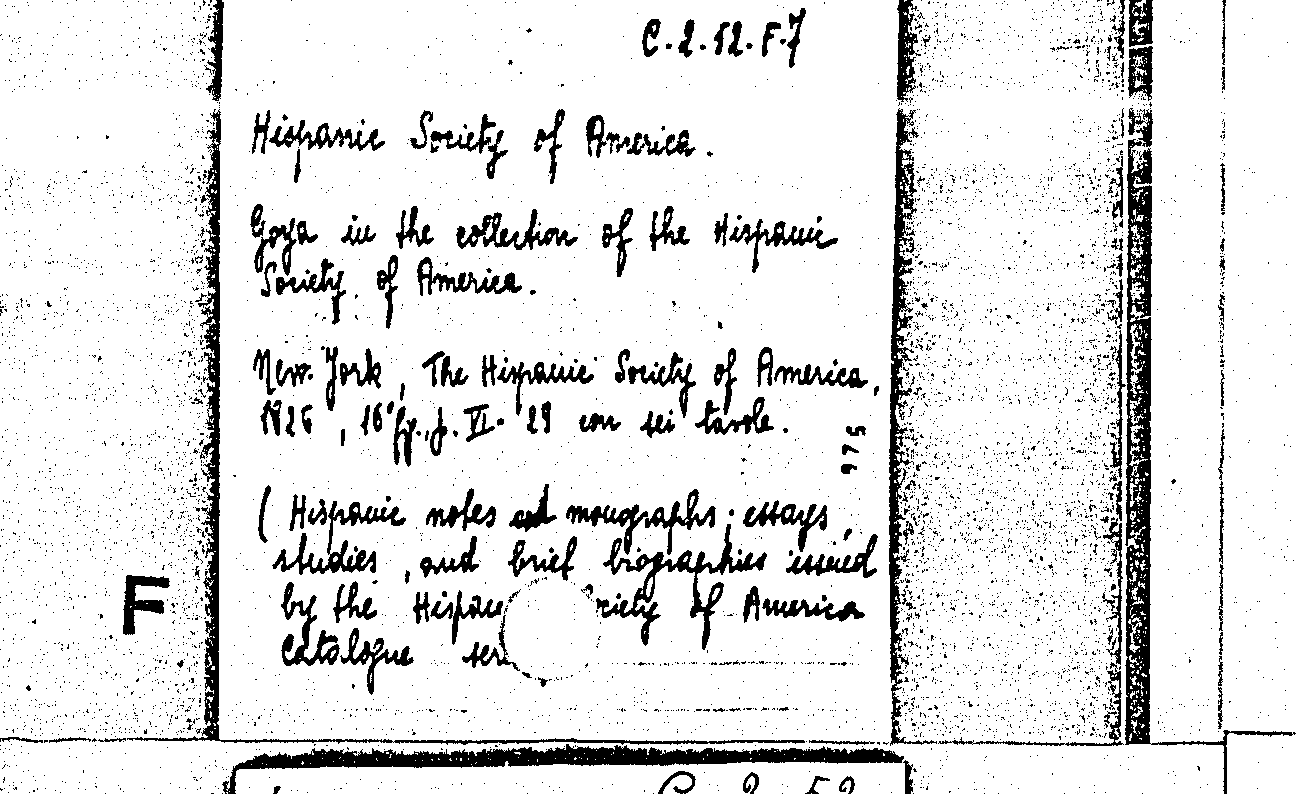 C.2.52.F.7
Hispanic Society of America.
Goya in the collection of the Hispanic
Society of America.
New York, The Hispanic Society of America,
16° p. VI-29 con sei tavole.
975
(Hispanic notes and monographs; essays,
studies, and brief biographies issued
by the of America
Catalogue
F
C 2 52